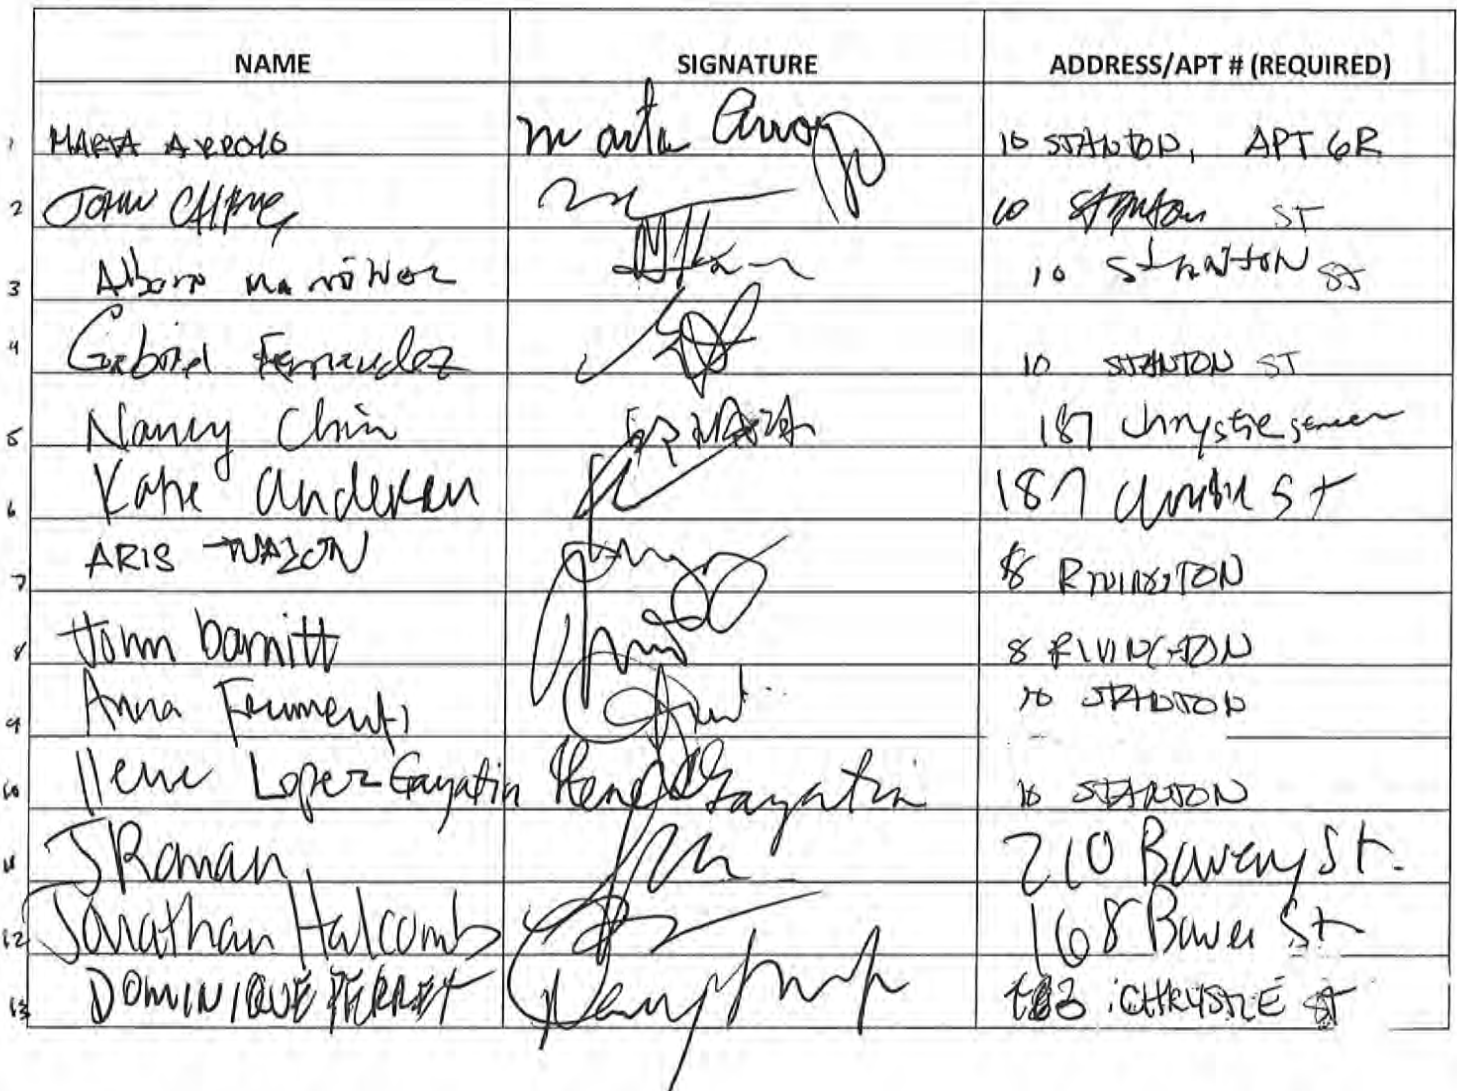 NAME SIGNATURE ADDRESS/APT # (REQUIRED)
1 MARTA ARROYO Marta Arroyo 10 STANTON, APT 6R
2 JOHN CHANG 10 Stanton ST
3 10 STANTON ST
4 Gabriel Fernandez 10 STANTON ST
5 Nancy Chin 187 Chrystie street
6 Katie Andersen 187 Christie St
7 ARIS 8 RIVINGTON
8 John barnitt 8 RIVINGTON
9 Anna Frumenti 10 STANTON
10 Ilene Lopez-Gayatin Ilene Gayatin 10 STANTON
11 J Roman 210 Bowery St.
12 Jonathan Halcomb 168 Bower St
13 DOMINIQUE CHRYSTIE ST